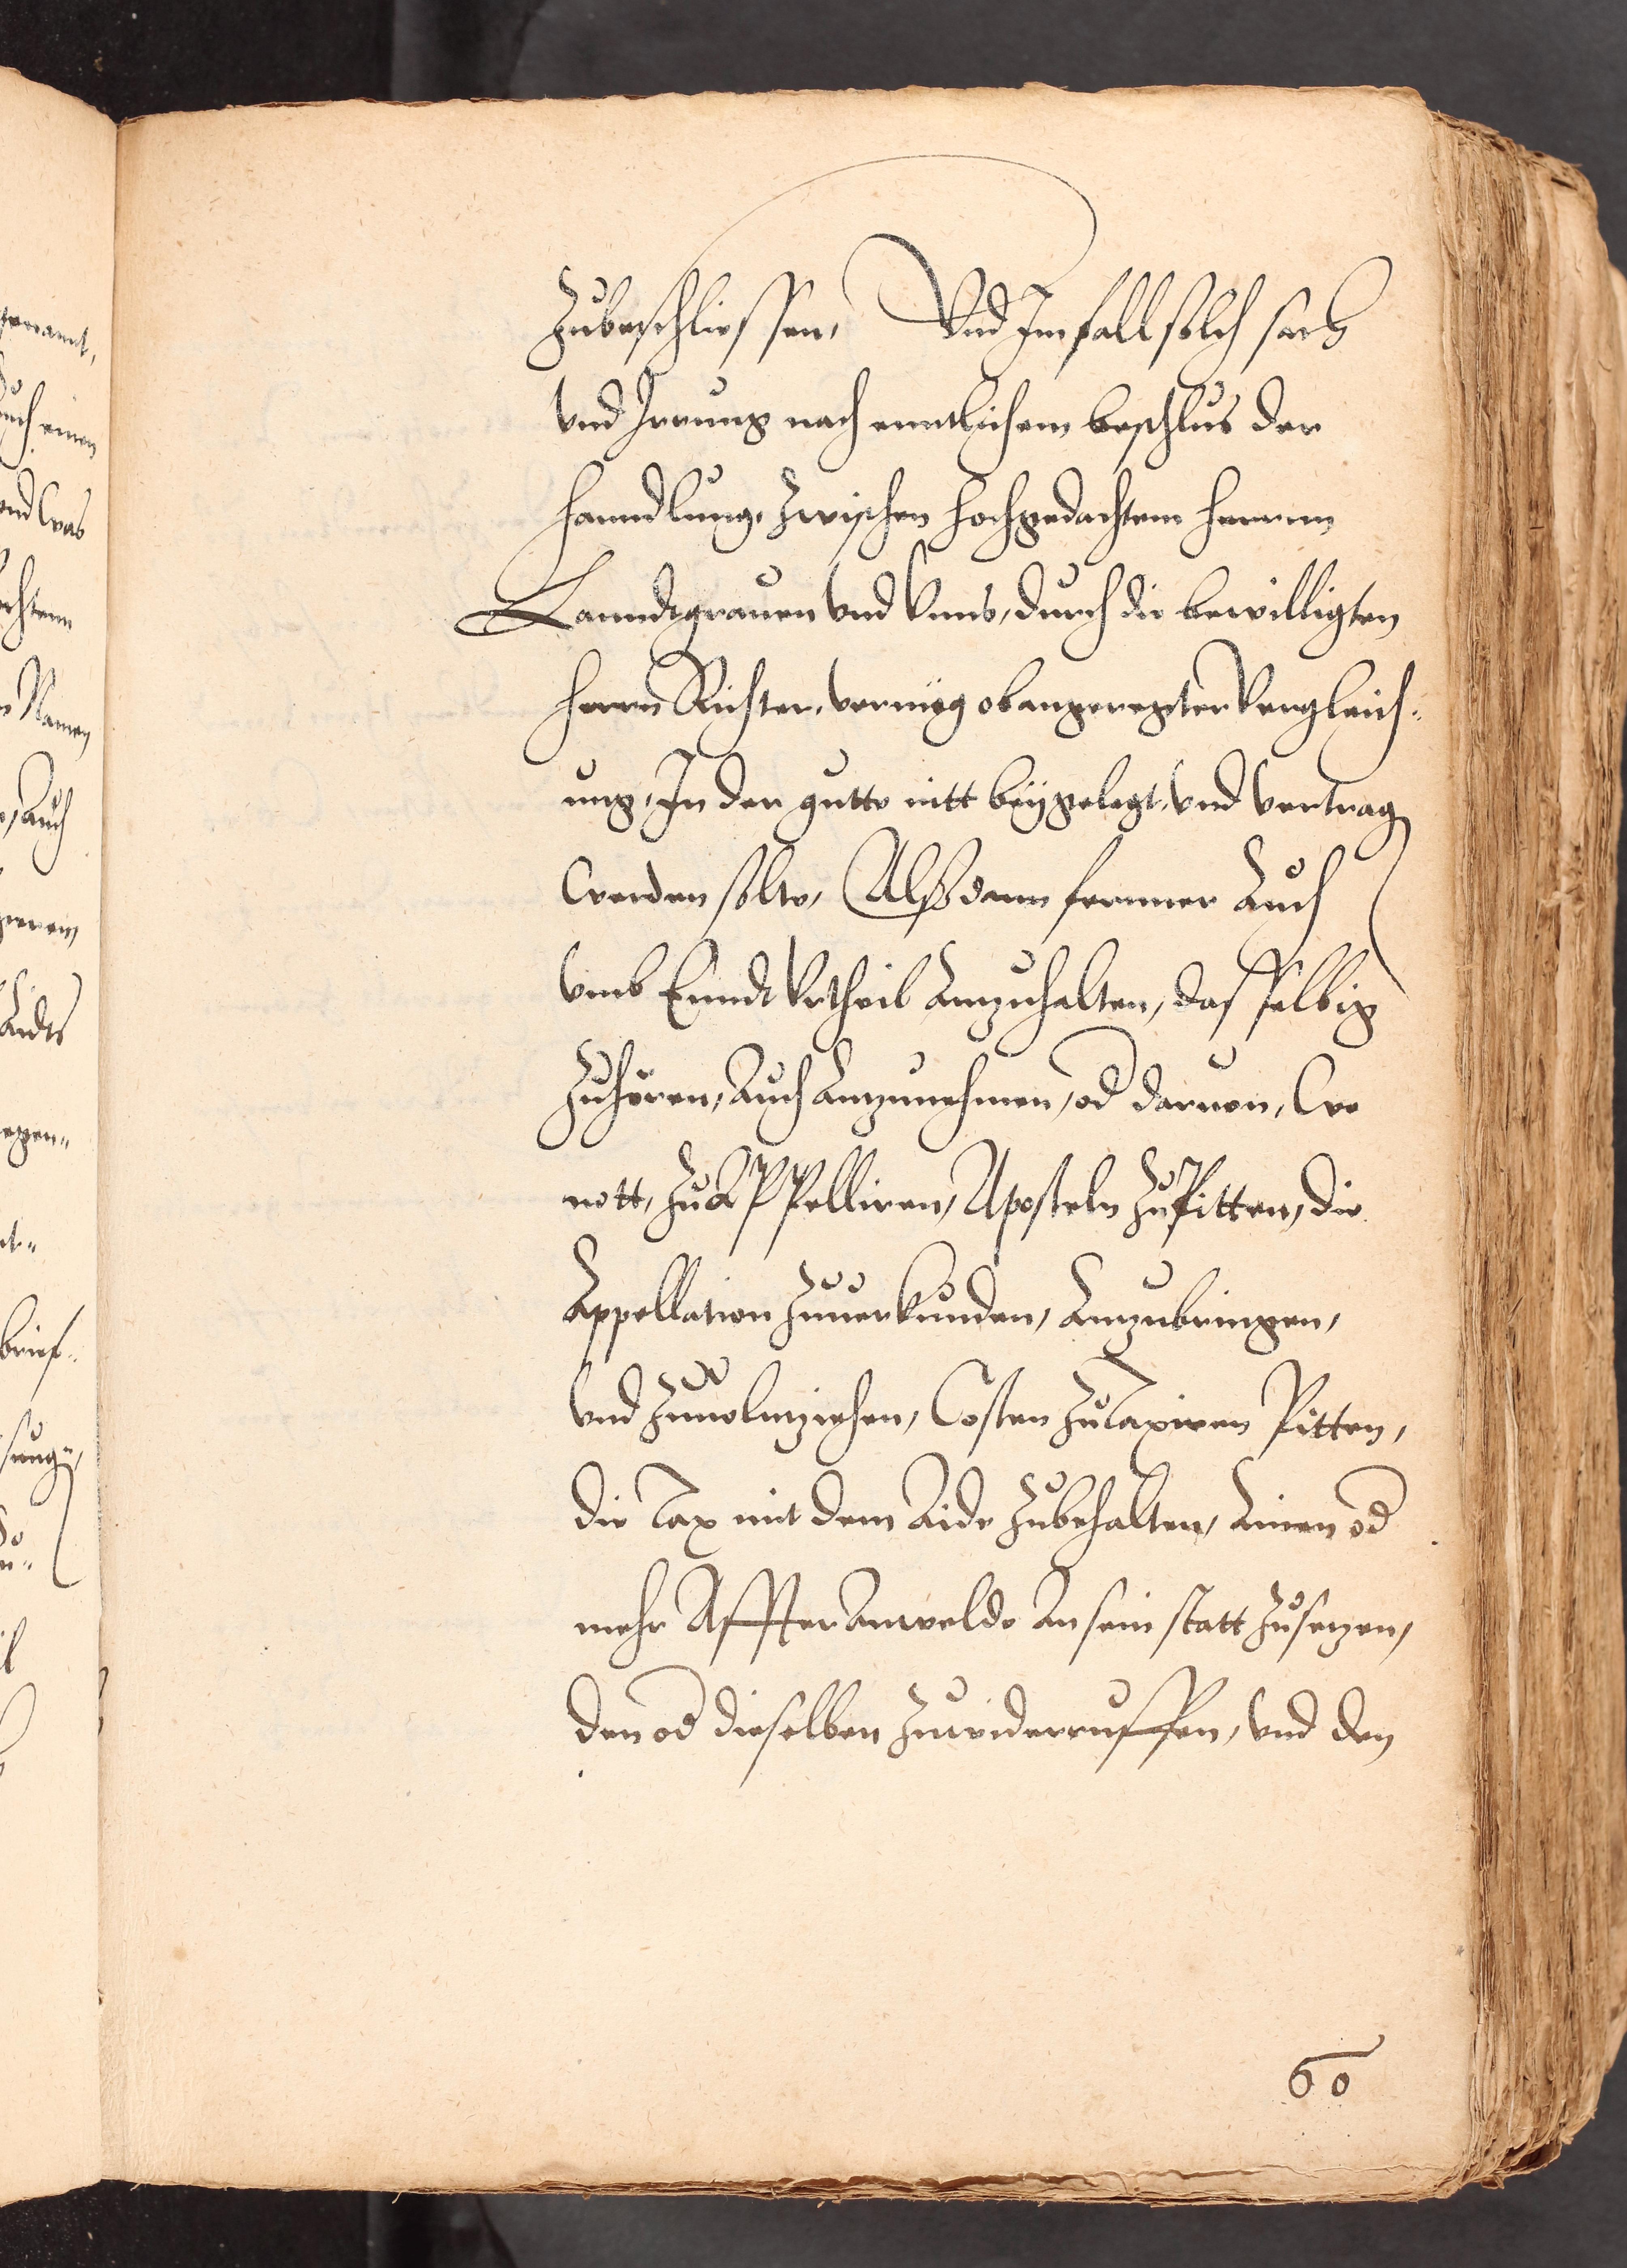 Zubeschliessen, Vnd Im fall solch sach
vnd Irrung nach enntlichem beschlus der
hanndlung, Zwischen hochgedachtem herrnn
Lanndtgrauen vnd Vnns, durch die bewilligten
herrn Richter, vermög obangeregter Vergleich¬
ung, In der gutte nitt beygelegt, vnd vertrag
werden solte, Alßdann fernner Auch
vmb Ennd Vrtheil Anzuhalten, dasselbig
Zuhören, Auch Anzunehmen, od daruon, wo
nott, Zu Appelliren, Aposteln Zu Pitten, die
Appellation Zuuerkunden, Anzubringen,
vnd Zuuolnziehen, Costen Zu Taxiren Pitten,
die Tax mit dem Aide Zubehalten, Ainen od
mehr Affter Anwelde An sein statt Zusetzen,
den od dieselben Zuwiderruffen, vnd den
60